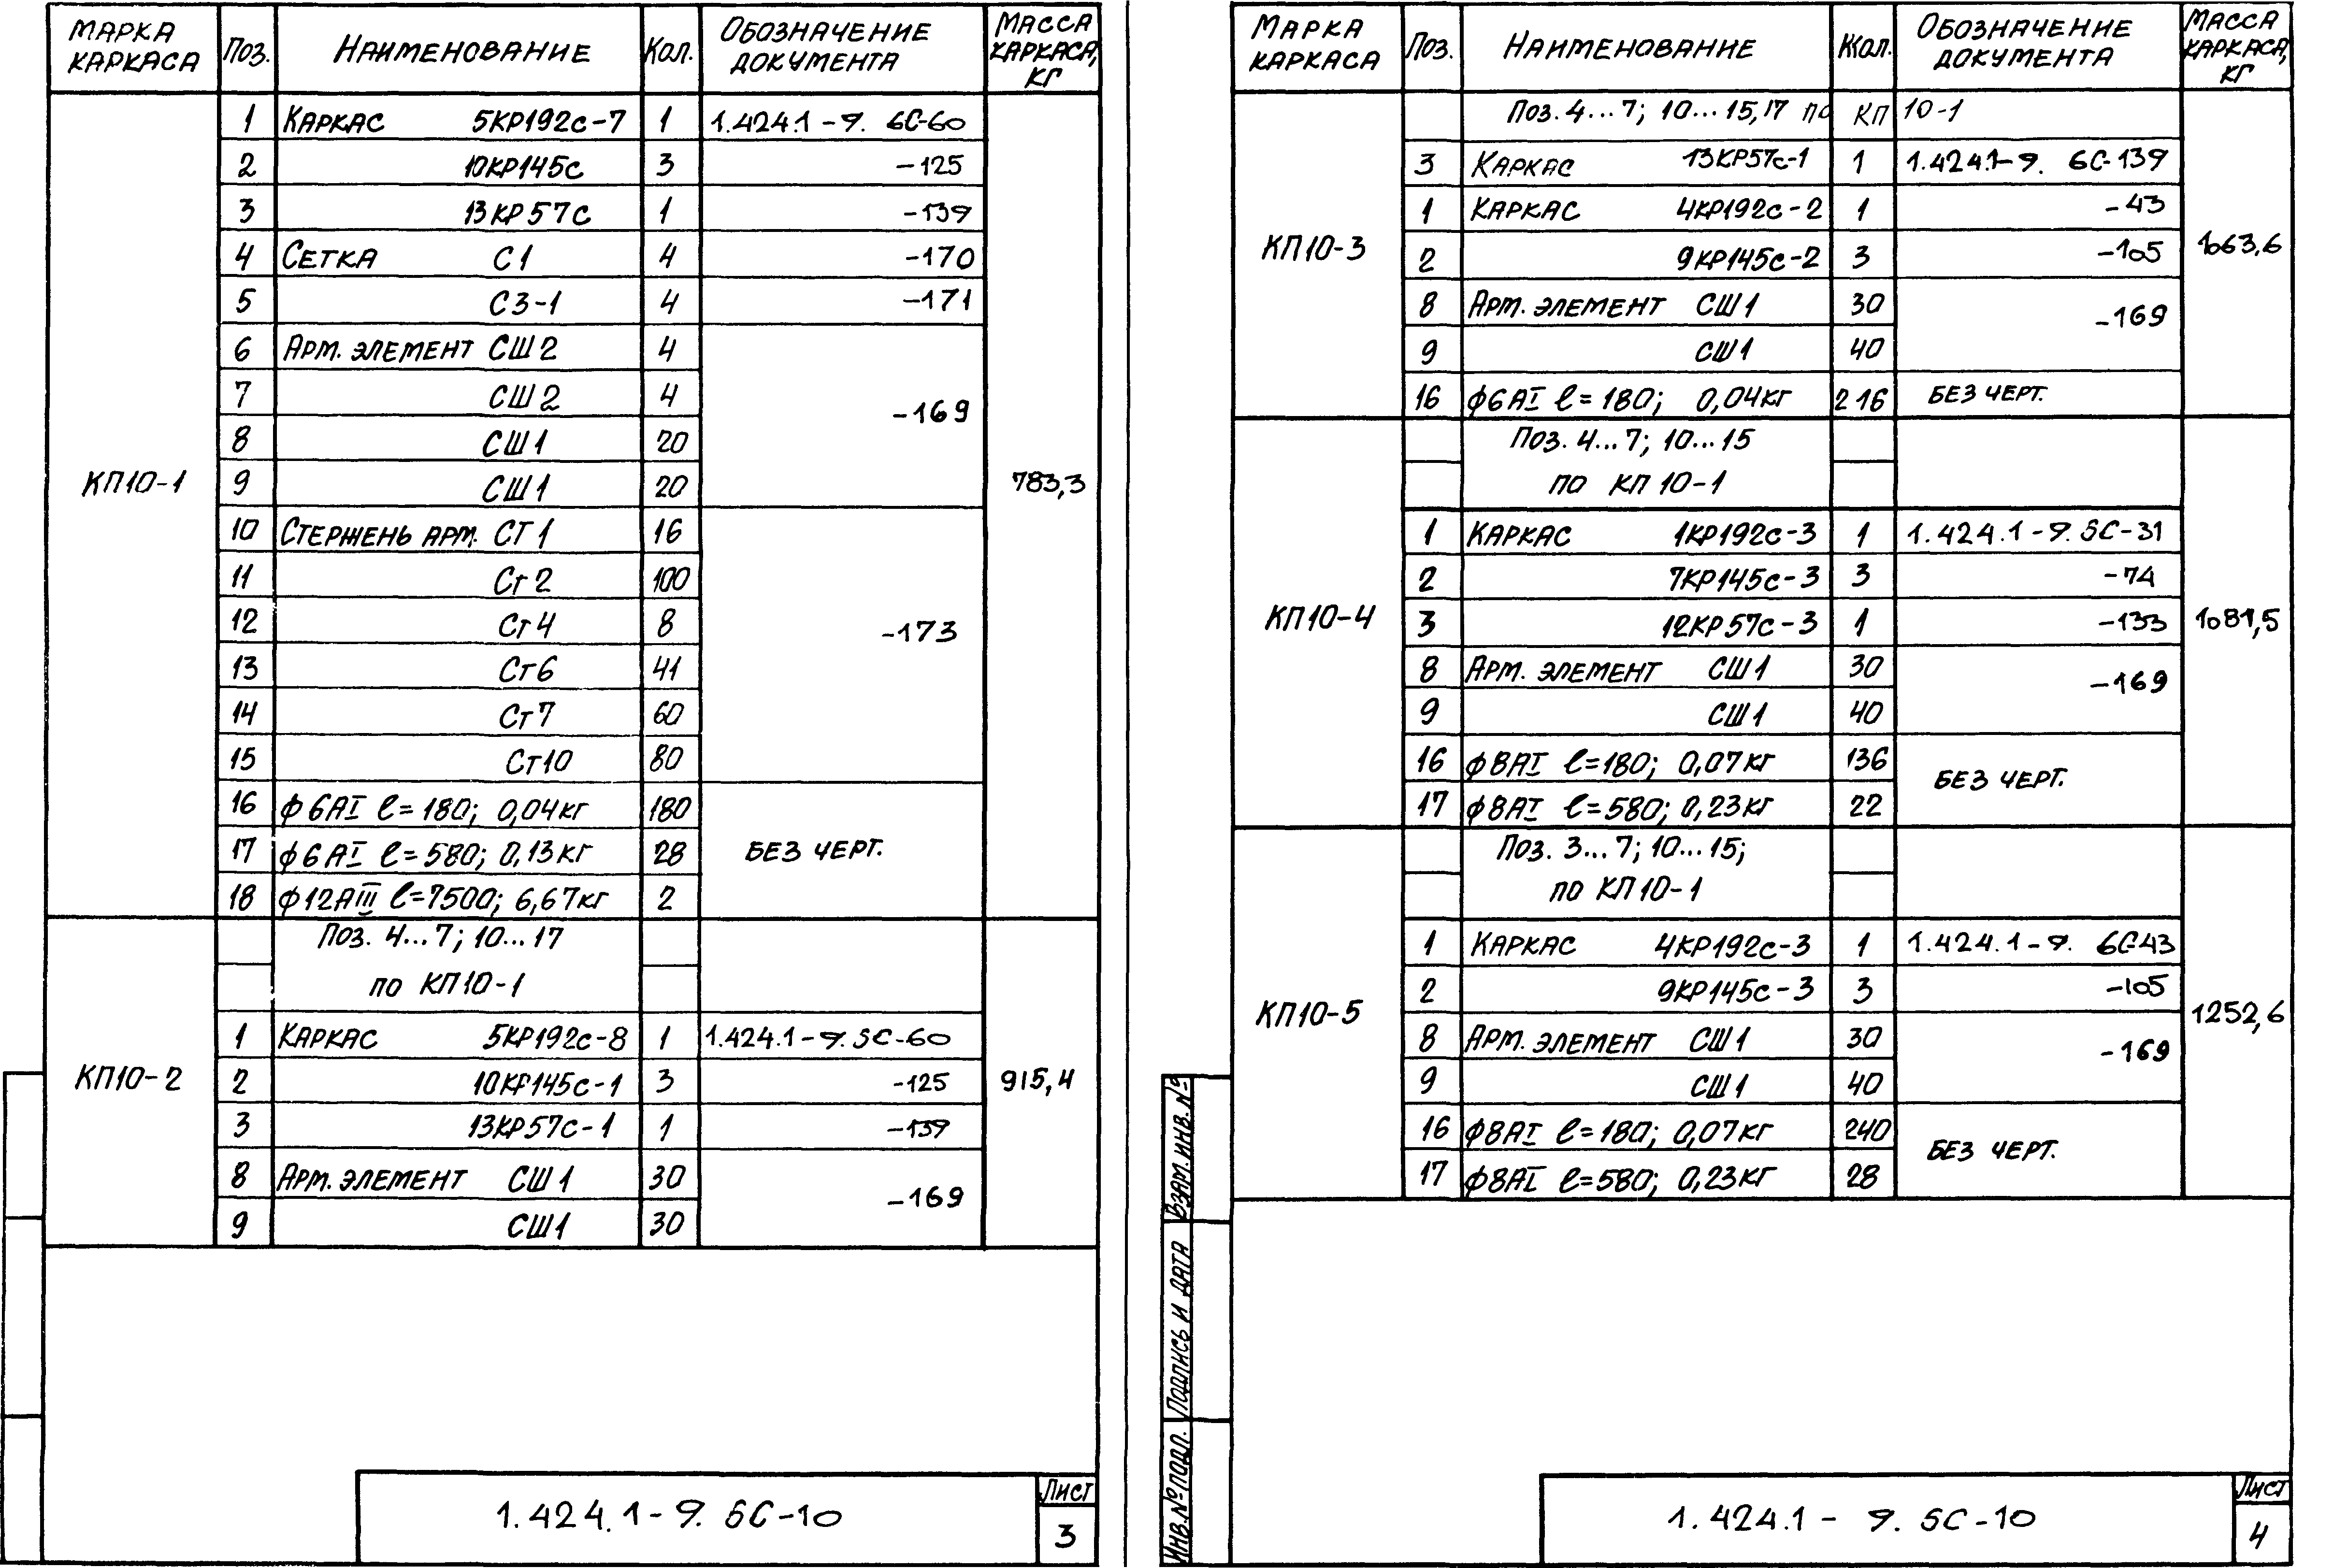 МАРКА КАРКАСА Поз. НАИМЕНОВАНИЕ Кол. ОБОЗНАЧЕНИЕ ДОКУМЕНТА МАССА КАРКАСА, КГ
КП10-1 783,3
1 КАРКАС 5КР192с-7 1 1.424.1-9. 6С-60
2 10КР145с 3 -125
3 13КР57С 1 -139
4 СЕТКА С1 4 -170
5 С3-1 4 -171
6 АРМ. ЭЛЕМЕНТ СШ2 4 -169
7 СШ2 4
8 СШ1 20
9 СШ1 20
10 СТЕРЖЕНЬ АРМ. СТ1 16 -173
11 Ст2 100
12 Ст4 8
13 Ст6 41
14 Ст7 60
15 Ст10 80
16 ф6АI ℓ=180; 0,04кг 180 БЕЗ ЧЕРТ.
17 ф6АI ℓ=580; 0,13кг 28
18 ф12АIII ℓ=7500; 6,67кг 2
КП10-2 915,4
Поз. 4...7; 10...17
по КП10-1
1 КАРКАС 5КР192с-8 1 1.424.1-9. 5С-60
2 10КР145с-1 3 -125
3 13КР57С-1 1 -139
8 АРМ. ЭЛЕМЕНТ СШ1 30 -169
9 СШ1 30
1.424.1-9. 6С-10
Лист
3
МАРКА КАРКАСА Поз. НАИМЕНОВАНИЕ Кол. ОБОЗНАЧЕНИЕ ДОКУМЕНТА МАССА КАРКАСА, КГ
КП10-3 1063,6
Поз. 4...7; 10...15,17 по КП 10-1
3 КАРКАС 13КР57с-1 1 1.424.1-9. 6С-139
1 КАРКАС 4КР192с-2 1 -43
2 9КР145с-2 3 -105
8 АРМ. ЭЛЕМЕНТ СШ1 30 -169
9 СШ1 40
16 ф6АI ℓ=180; 0,04кг 216 БЕЗ ЧЕРТ.
КП10-4 1081,5
Поз. 4...7; 10...15
по КП 10-1
1 КАРКАС 1КР192с-3 1 1.424.1-9. 5С-31
2 7КР145с-3 3 -74
3 12КР57с-3 1 -133
8 АРМ. ЭЛЕМЕНТ СШ1 30 -169
9 СШ1 40
16 ф8АI ℓ=180; 0,07кг 136 БЕЗ ЧЕРТ.
17 ф8АI ℓ=580; 0,23кг 22
КП10-5 1252,6
Поз. 3...7; 10...15;
по КП10-1
1 КАРКАС 4КР192с-3 1 1.424.1-9. 6С-43
2 9КР145с-3 3 -105
8 АРМ. ЭЛЕМЕНТ СШ1 30 -169
9 СШ1 40
16 ф8АI ℓ=180; 0,07кг 240 БЕЗ ЧЕРТ.
17 ф8АI ℓ=580; 0,23кг 28
ВЗАМ. ИНВ. №
ПОДПИСЬ И ДАТА
ИНВ. № ПОДЛ.
1.424.1-9. 5С-10
Лист
4